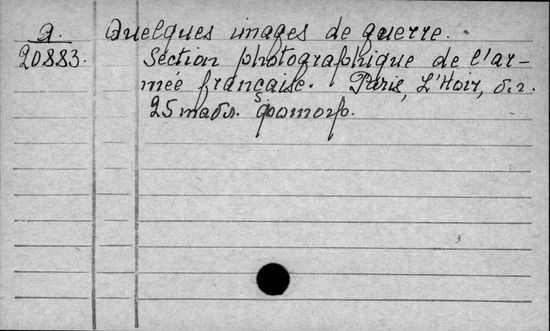 A.
20883.
Quelques images de guerre.
Section photographique de l'ar-
mée française. Paris, L'Hoir, б.г.
25 табл. фотогр.